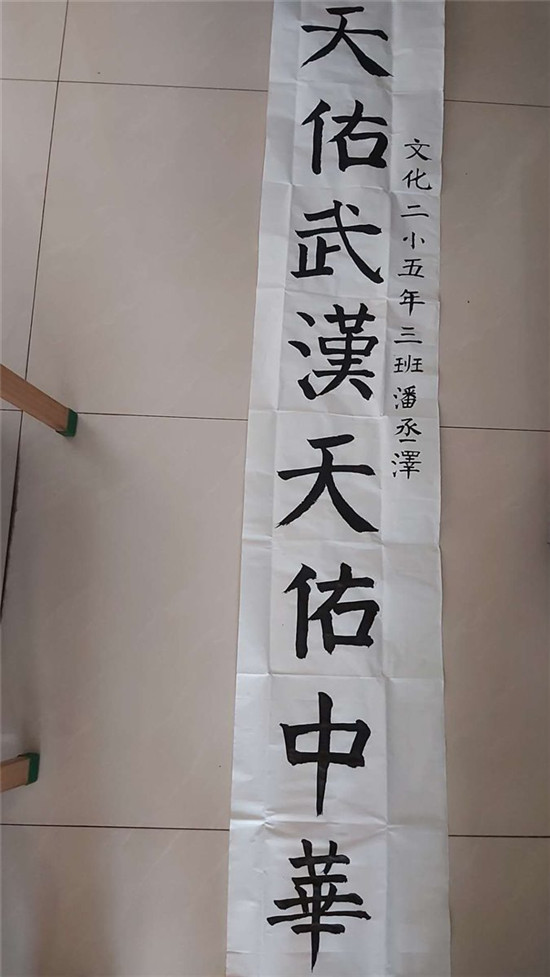 天佑武漢天佑中華
文化二小五年三班潘丞澤